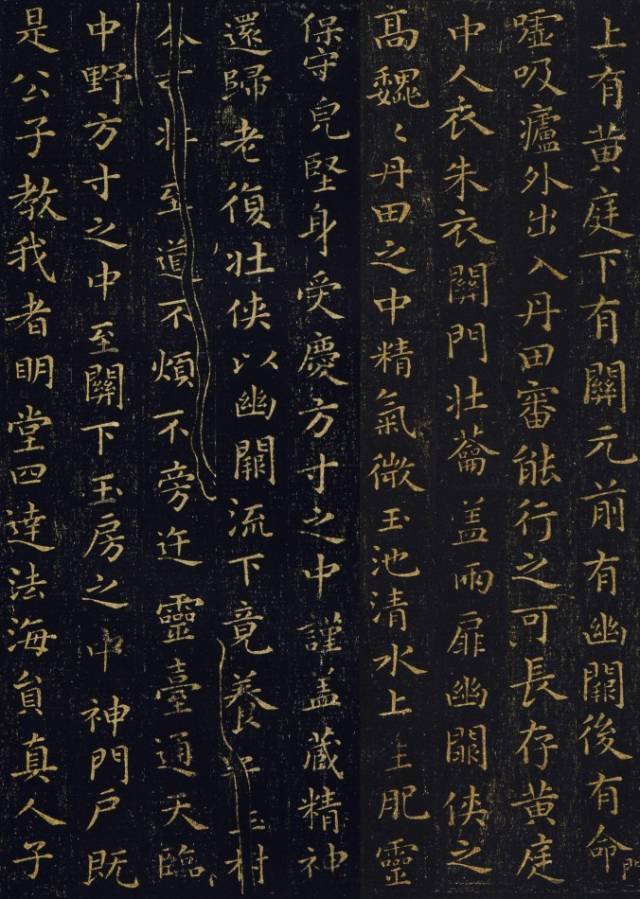 上有黄庭下有關元前有幽闕後有命門
嘘吸廬外出入丹田審能行之可長存黄庭
中人衣朱衣關門壮籥盖兩扉幽闕侠之
高魏〻丹田之中精氣微玉池清水上生肥靈
保守皃堅身受慶方寸之中謹盖藏精神
還歸老復壮侠以幽闕流下竟養子玉樹
至道不煩不旁迕靈臺通天臨
中野方寸之中至關下玉房之中神門户既
是公子教我者明堂四達法海員真人子